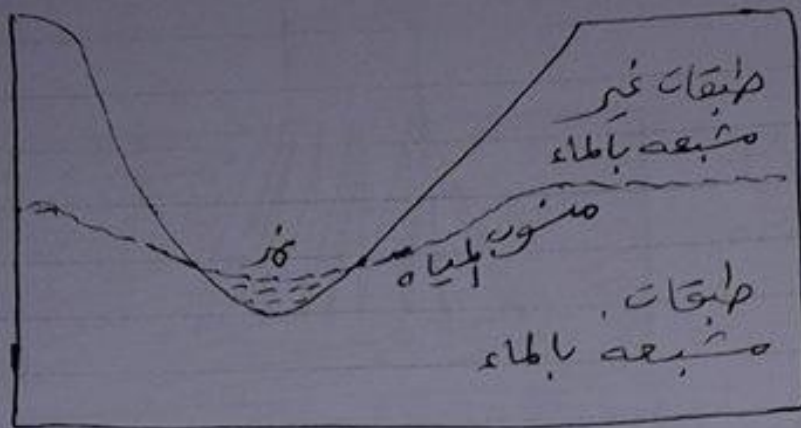 طبقات غير
مشبعه بالماء
نهر
منسوب المياه
طبقات
مشبعه بالماء